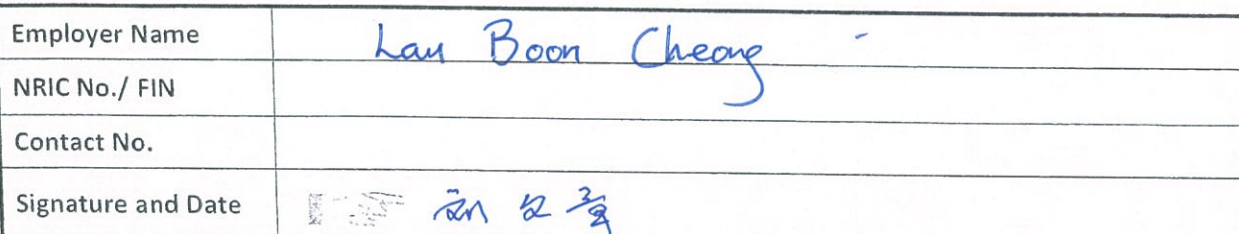 Employer Name Lau Boon Cheong
NRIC No./ FIN
Contact No.
Signature and Date 刘文章